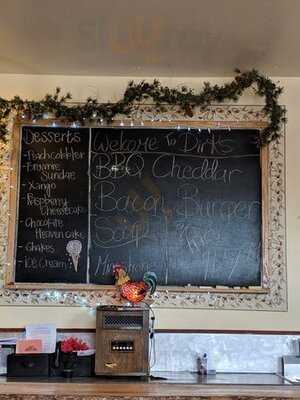 Desserts
- Peach cobbler
- Brownie
Sundae
- Xango
- Raspberry
Cheesecake
- Chocolate
Heaven cake
- Shakes
- Ice Cream
Welcome To Dirks
BBQ Cheddar
Bacon Burger
Soup
Minestrone